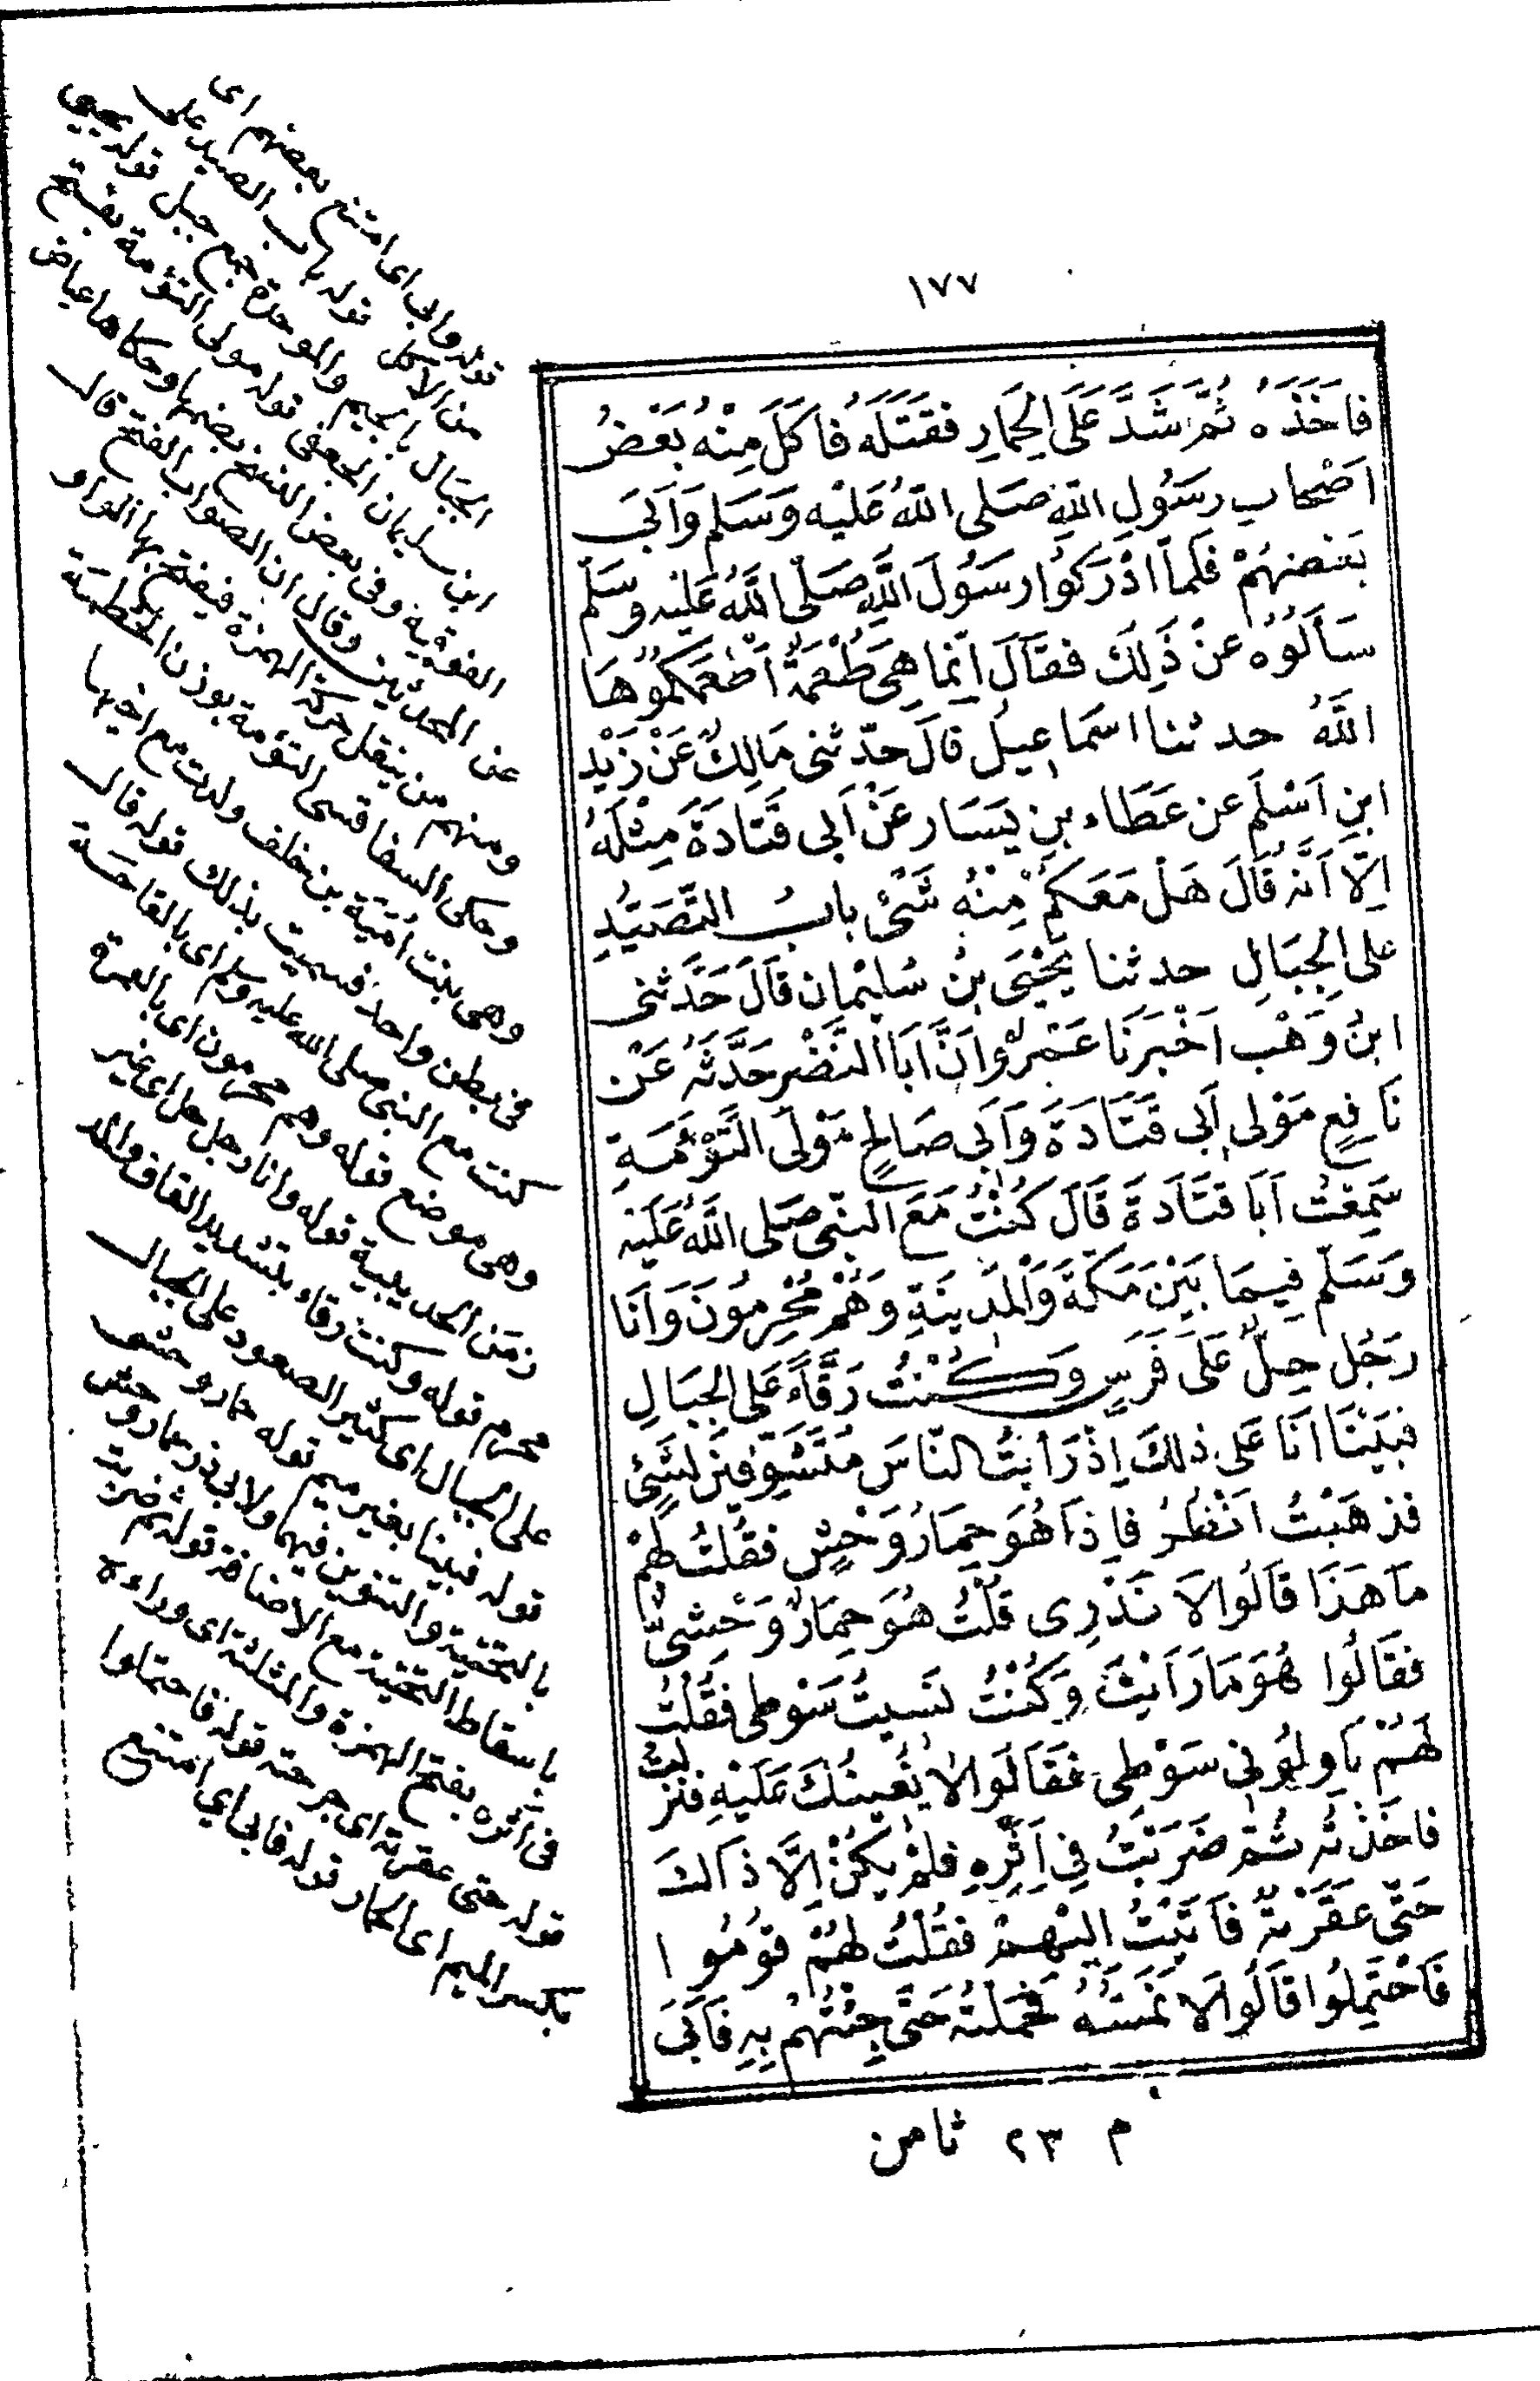 ١٧٧
فَاَخَذَهُ ثُمَّ شَدَّ عَلَى الْحِمَارِ فَقَتَلَهُ فَاَكَلَ مِنْهُ بَعْضُ
اَصْحَابِ رَسُولِ اللّٰهِ صَلَّى اللّٰهُ عَلَيْهِ وَسَلَّمَ وَاَبَى
بَعْضُهُمْ فَلَمَّا اَدْرَكُوا رَسُولَ اللّٰهِ صَلَّى اللّٰهُ عَلَيْهِ وَسَلَّمَ
سَاَلُوهُ عَنْ ذَلِكَ فَقَالَ اِنَّمَا هِىَ طُعْمَةٌ اَطْعَمَكُمُوهَا
اللّٰهُ حدثنا اسمَاعِيلُ قَالَ حَدَّثَنى مَالِكٌ عَنْ زَيْدِ
ابنِ اَسْلَمَ عن عَطَاءِ بنِ يَسَار عَنْ اَبى قَتَادَةَ مِثْلَهُ
اِلَّا اَنَّهُ قَالَ هَلْ مَعَكُمْ مِنْهُ شَىْءٌ بابُ التَّصَيُّدِ
عَلى الجِبَالِ حدثنا يَحْيَى بنُ سُلَيْمان قَالَ حَدَّثَنى
ابنُ وَهْبٍ اَخْبَرَنَا عَمْرٌو اَنَّ اَبَا النَّضْرِ حَدَّثَهُ عَنْ
نَافِعٍ مَوْلى اَبى قَتَادَةَ وَاَبى صَالِحٍ مَوْلَى التَّوْءَمَةِ
سَمِعْتُ اَبَا قَتَادَةَ قَالَ كُنْتُ مَعَ النَّبِىِّ صَلَّى اللّٰهُ عَلَيْهِ
وَسَلَّمَ فِيمَا بَيْنَ مَكَّةَ وَالْمَدِينَةِ وَهُمْ مُحْرِمُونَ وَاَنَا
رَجُلٌ حِلٌّ عَلَى فَرَسٍ وَكُنْتُ رَقَّاءً عَلَى الجِبَالِ
فَبَيْنَا اَنَا عَلَى ذٰلِكَ اِذْ رَاَيْتُ النَّاسَ مُتَشَوِّفِينَ لِشَىْءٍ
فَذَهَبْتُ اَنْظُرُ فَاِذَا هُوَ حِمَارُ وَحْشٍ فَقُلْتُ لَهُمْ
مَا هَذَا قَالُوا لَا نَدْرِى قُلْتُ هُوَ حِمَارٌ وَحْشِىٌّ
فَقَالُوا هُوَ مَا رَاَيْتَ وَكُنْتُ نَسِيتُ سَوْطِى فَقُلْتُ
لَهُمْ نَاوِلُونِى سَوْطِى فَقَالُوا لَا نُعِينُكَ عَلَيْهِ فَنَزَلْتُ
فَاَخَذْتُهُ ثُمَّ ضَرَبْتُ فِى اَثَرِهِ فَلَمْ يَكُنْ اِلَّا ذَاكَ
حَتَّى عَقَرْتُهُ فَاَتَيْتُ اِلَيْهِمْ فَقُلْتُ لَهُمْ قُومُوا
فَاحْتَمِلُوا قَالُوا لَا نَمَسُّهُ فَحَمَلْتُهُ حَتَّى جِئْتُهُمْ بِهِ فَاَبَى
م ٢٣ ثامن
قوله وابى اى امتنع بعضهم اى
من الاكل قوله باب الصيد على
الجبال بالجيم والموحدة جمع جبل قوله يحيى
ابن سليمان الجعفى قوله مولى التؤمة بفتح
الفوقية وفى بعض النسخ بضمها وحكاها عياض
عن المحدثين وقال ان الصواب الفتح قال
ومنهم من ينقل حركة الهمزة فيفتح بها الواو
وحكى السفاقسى التؤمة بوزن الحطمة
وهى بنت امية بن خلف ولدت مع اخيها
فى بطن واحد فسميت بذلك قوله قال
كنت مع النبى صلى الله عليه وسلم اى بالقاحة
وهى موضع قوله وهم محرمون اى بالعمرة
زمن الحديبية قوله وانا رجل حل اى غير
محرم قوله وكنت رقاء بتشديد القاف والمد
على الجبال اى كثير الصعود على الجبال
قوله فبينا بغير ميم قوله حمار وحشى
بالتحتية والتنوين فيهما ولابى ذر حمار وحش
باسقاط التحتية مع الاضافة قوله ثم ضربت
فى اثره بفتح الهمزة والمثلثة اى وراءه
قوله حتى عقرته اى جرحته قوله فاحتملوا
بكسر الميم اى الحمار قوله فابى اى امتنع